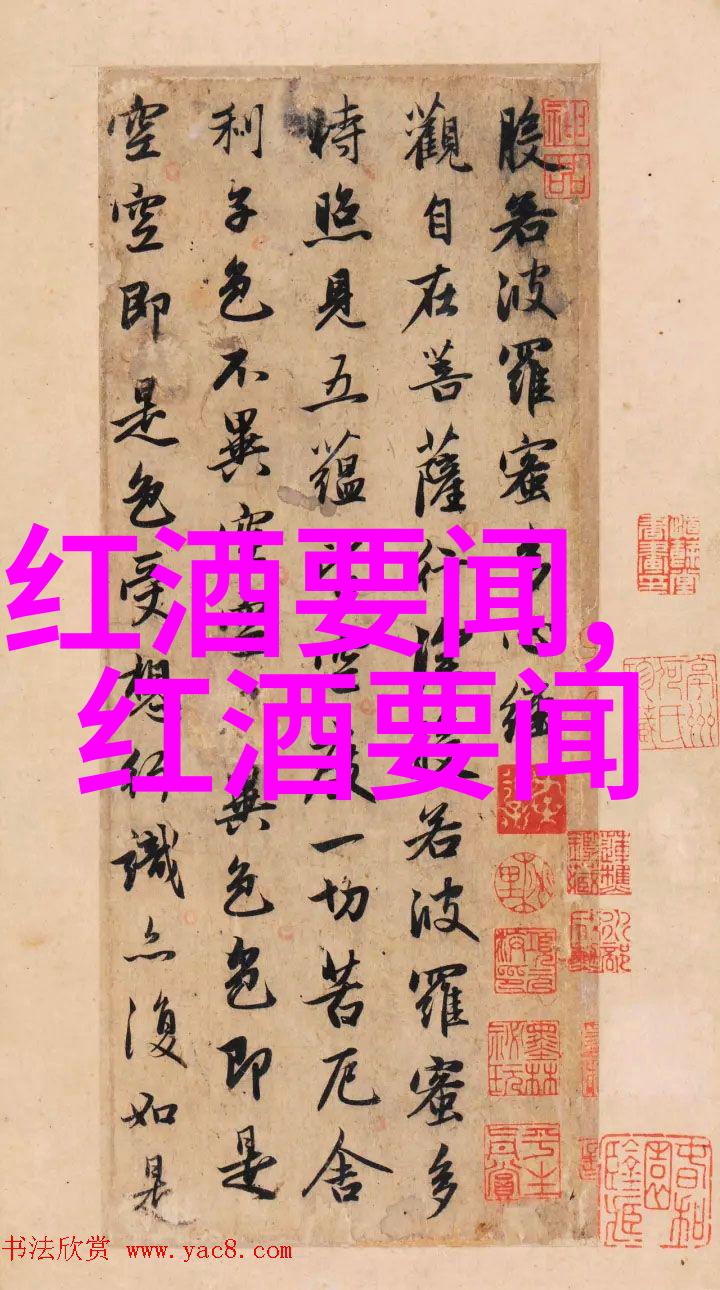 般若波羅蜜多心經
觀自在菩薩行深般若波羅蜜多
時照見五蘊皆空度一切苦厄舍
利子色不異空空不異色色即是
空空即是色受想行識亦復如是
红酒要闻,
红酒要闻
神品
墨林祕玩
书法欣赏 www.yac8.com